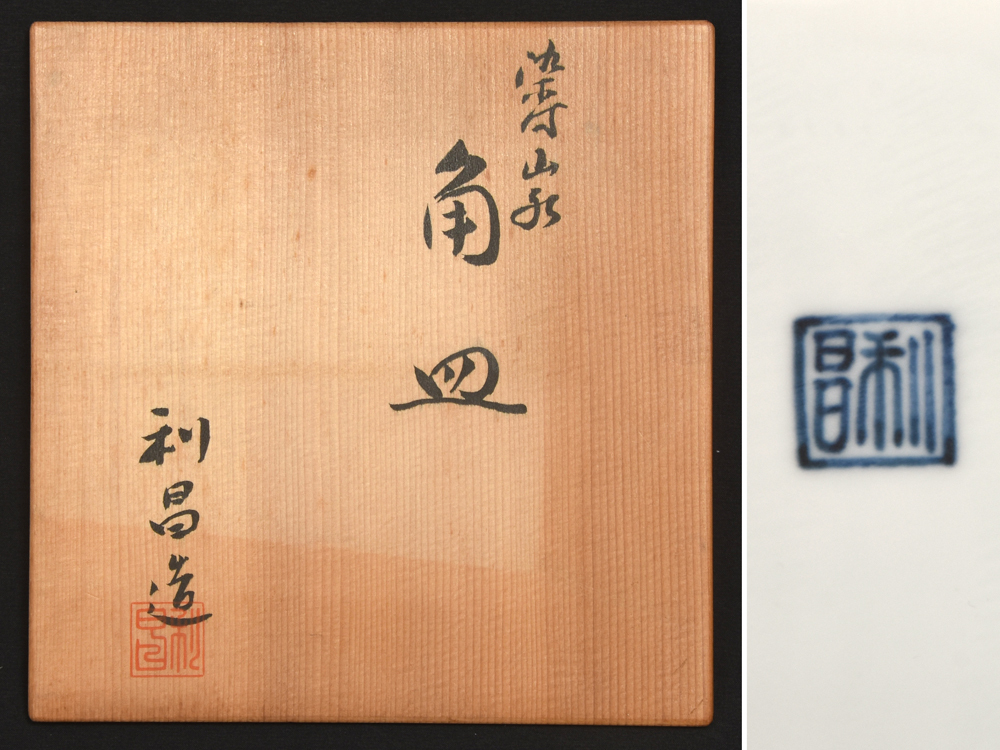 染付山水
角皿
利昌造
利昌
利昌